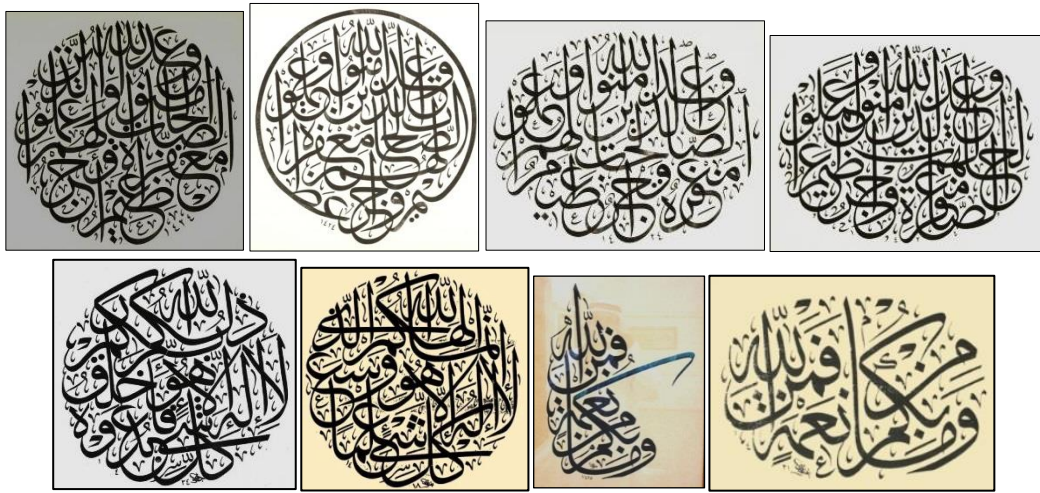 وعد الله الذين آمنوا وعملوا الصالحات لهم مغفرة وأجر عظيم
وعد الله الذين آمنوا وعملوا الصالحات لهم مغفرة وأجر عظيم
وعد الله الذين آمنوا وعملوا الصالحات لهم مغفرة وأجر عظيم
وعد الله الذين آمنوا وعملوا الصالحات لهم مغفرة وأجر عظيم
ذلكم الله ربكم لا إله إلا هو خالق كل شيء فاعبدوه
إنما إلهكم الله الذي لا إله إلا هو وسع كل شيء علما
وما بكم من نعمة فمن الله
وما بكم من نعمة فمن الله